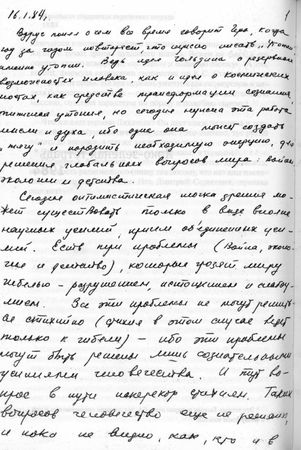 16.1.84, 1
Вдруг понял о чем все время говорит Ира, когда
год за годом повторяет, что нужно писать
именно утопии. Ведь идея Гольдина о резервных
возможностях человека, как и идея о космических
полетах, как средства трансформации социальной
утопии, но сегодня нужна эта работа
мысли и духа, ибо одна она может создать
и породить необходимую энергию, для
решения глобальных вопросов мира: война,
экология и детства.
Сегодня оптимистическая точка зрения мо-
жет существовать только в виде вполне
научных усилий, причем объединенных уси-
лий. Есть три проблемы (война, эколо-
гия и детство), которые грозят миру
гибелью – разрушением, истощением и
Все эти проблемы не могут решить-
ся стихийно (стихия в этом случае ведет
только к гибели) – ибо эти проблемы
могут быть решены лишь сознательными
усилиями человечества. И тут во-
прос в пути наперекор стихиям. Таких
вопросов человечество еще не решало,
и пока не видно, как, кто и в